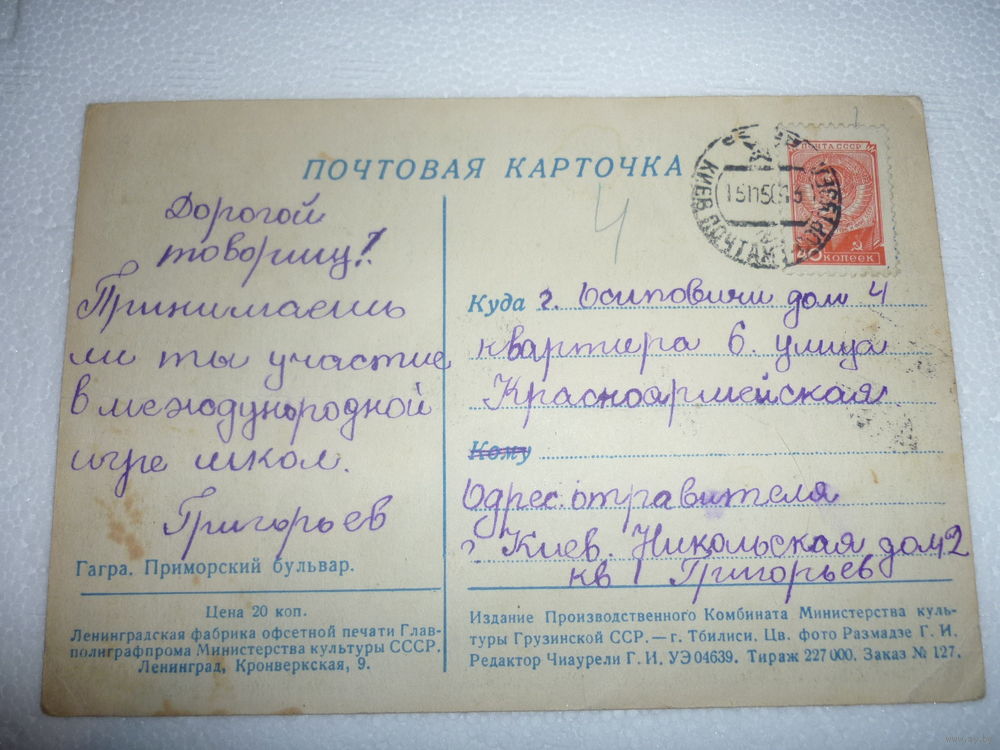 ПОЧТОВАЯ КАРТОЧКА
4
ПОЧТА СССР
КИЕВ ПОЧТАМТ
40 КОПЕЕК
Дорогой
товарищ!
Принимаешь
ли ты участие
в международной
игре школ.
Григорьев
Гагра. Приморский бульвар.
Цена 20 коп.
Ленинградская фабрика офсетной печати Глав-
полиграфпрома Министерства культуры СССР.
Ленинград, Кронверкская, 9.
Куда г. Осиповичи дом 4
квартира 6. улица
Красноармейская.
Кому
Одрес. отравителя
г Киев. Никольская дом 2
кв 1 Григорьев
Издание Производственного Комбината Министерства куль-
туры Грузинской ССР. — г. Тбилиси. Цв. фото Размадзе Г. И.
Редактор Чиаурели Г. И. УЭ 04639. Тираж 227 000. Заказ № 127.